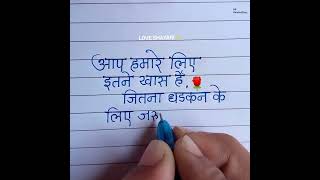 LOVE SHAYARI
आप हमारे लिए
इतने खास है,
जितना धडकन के
लिए जरु